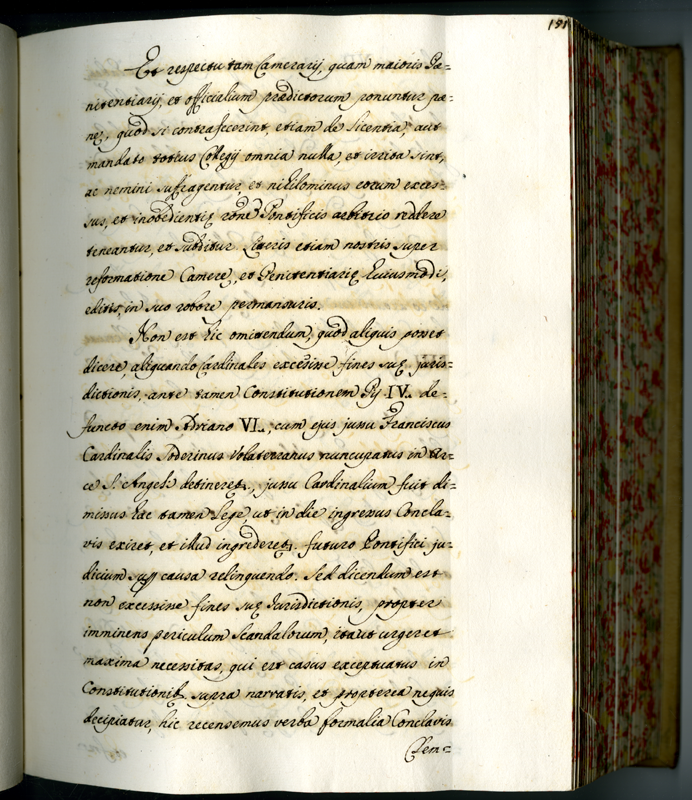 151
Et respectu tam Camerarij, quam maioris Pæ=
nitentiarij, et officialium prædictorum ponuntur pæ=
nę, quod si contrafecerint, etiam de licentia, aut
mandato totius Collegij omnia nulla, et irrita sint,
ac nemini suffragentur, et nihilominus eorum exces=
sus, et inobedientię rōne Pontificis arbitrio reddere
teneantur, et subditur literis etiam nostris super
reformatione Camerę, et Penitentiarię huiusmodi,
editis, in suo robore permansuris.
Non est hic omittendum, quod aliquis posset
dicere, aliquando Cardinales excessisse fines suę juris=
dictionis, ante tamen Constitutionem Pij IV. de=
functo enim Adriano VI., cum ejus jussu Franciscus
Cardinalis Soderinus Volaterranus nuncupatus in Ar=
ce S. Angeli detineret., jussu Cardinalium fuit di=
missus hac tamen lege, ut in die ingressus Concla=
vis exiret, et illud ingrederet. futuro Pontifici ju=
dicium sup. causa relinquendo. Sed dicendum est
non excessisse fines suę Jurisdictionis, propter
imminens periculum scandalorum, ita ut urgeret
maxima necessitas, qui est casus exceptuatus in
Constitutionib. supra narratis, et propterea nequis
decipiatur, hic recensemus verba formalia Conclavis
Clem=